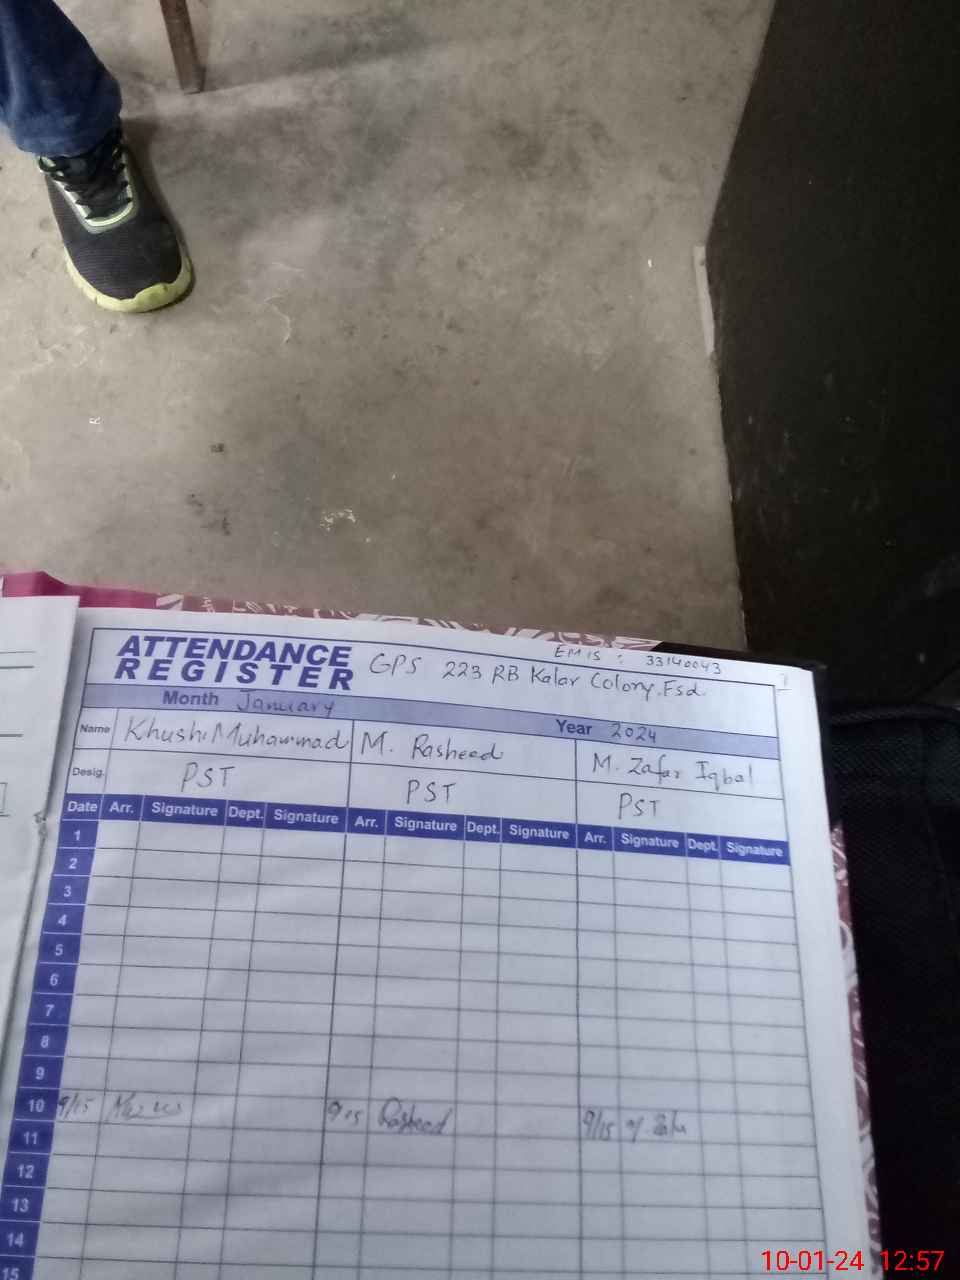 EMIS : 33140043
ATTENDANCE
REGISTER
GPS 223 RB Kalar Colony, Fsd
Month January Year 2024
Name Khushi Muhammad M. Rasheed M. Zafar Iqbal
Desig. PST PST PST
Date Arr. Signature Dept. Signature Arr. Signature Dept. Signature Arr. Signature Dept. Signature
1
2
3
4
5
6
7
8
9
10 9/15 9/15 Rasheed 9/15
11
12
13
14
15
10-01-24 12:57